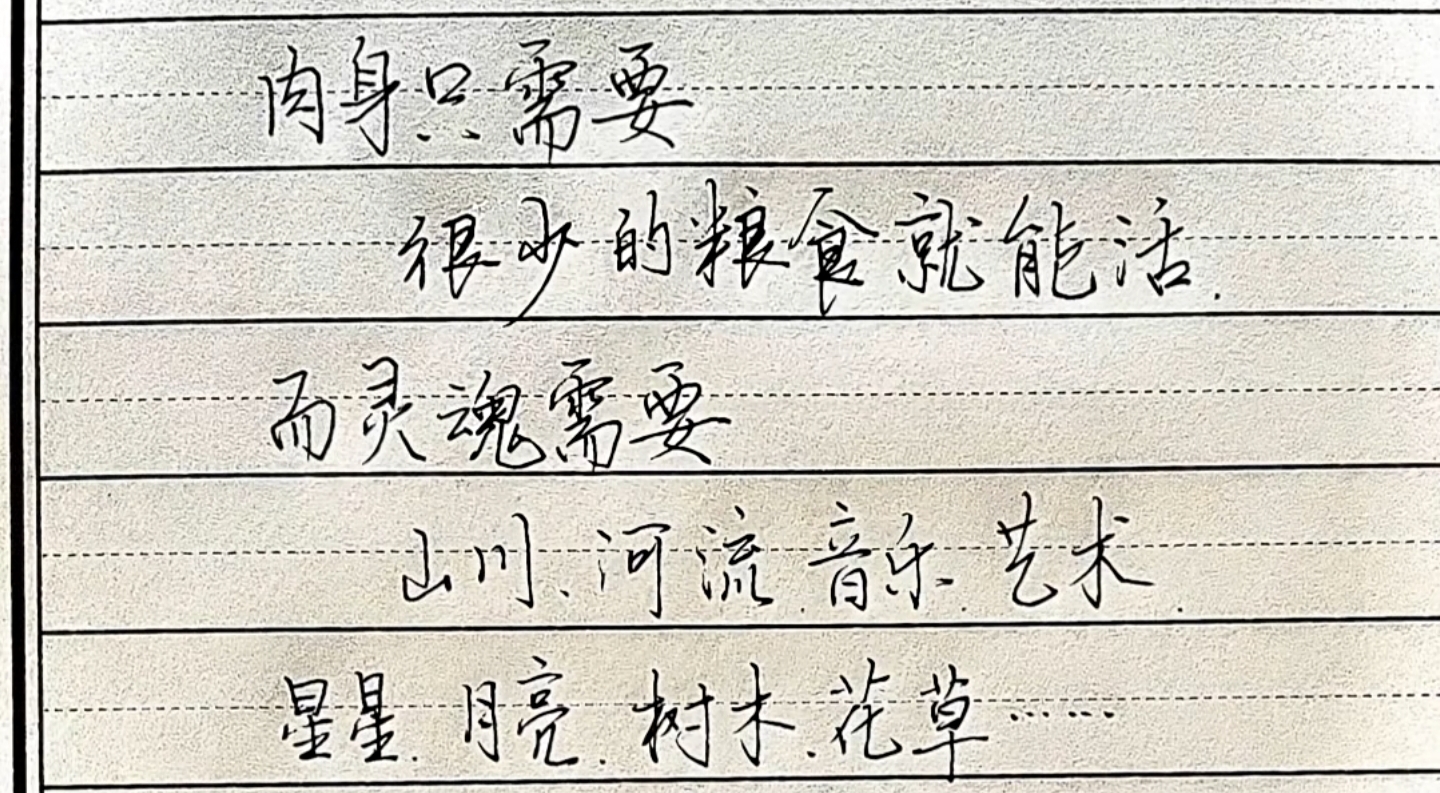 肉身只需要
很少的粮食就能活.
而灵魂需要
山川、河流、音乐、艺术、
星星、月亮、树木、花草……